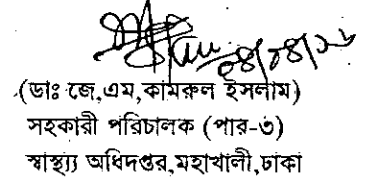 ০৪/০৪/২১
(ডাঃ জে,এম,কামরুল ইসলাম)
সহকারী পরিচালক (পার-৩)
স্বাস্থ্য অধিদপ্তর,মহাখালী,ঢাকা